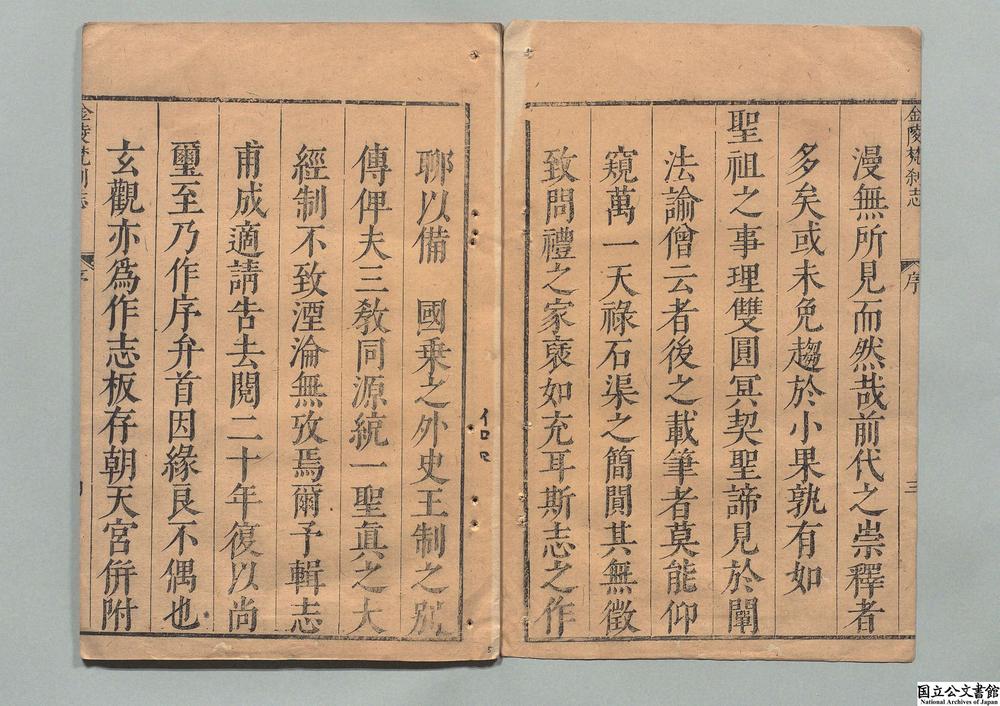 金陵梵刹志
序
三
漫無所見而然哉前代之崇釋者
多矣或未免趨於小果孰有如
聖祖之事理雙圓冥契聖諦見於闡
法諭僧云者後之載筆者莫能仰
窺萬一天祿石渠之簡閴其無徵
致問禮之家裒如充耳斯志之作
聊以備　國乗之外史王制之別
傳俾夫三敎同源統一聖眞之大
經制不致湮淪無攷焉爾予輯志
甫成適請告去閱二十年復以尚
璽至乃作序弁首因緣良不偶也
玄觀亦爲作志板存朝天宮併附
金陵梵刹志
序
国立公文書館
National Archives of Japan